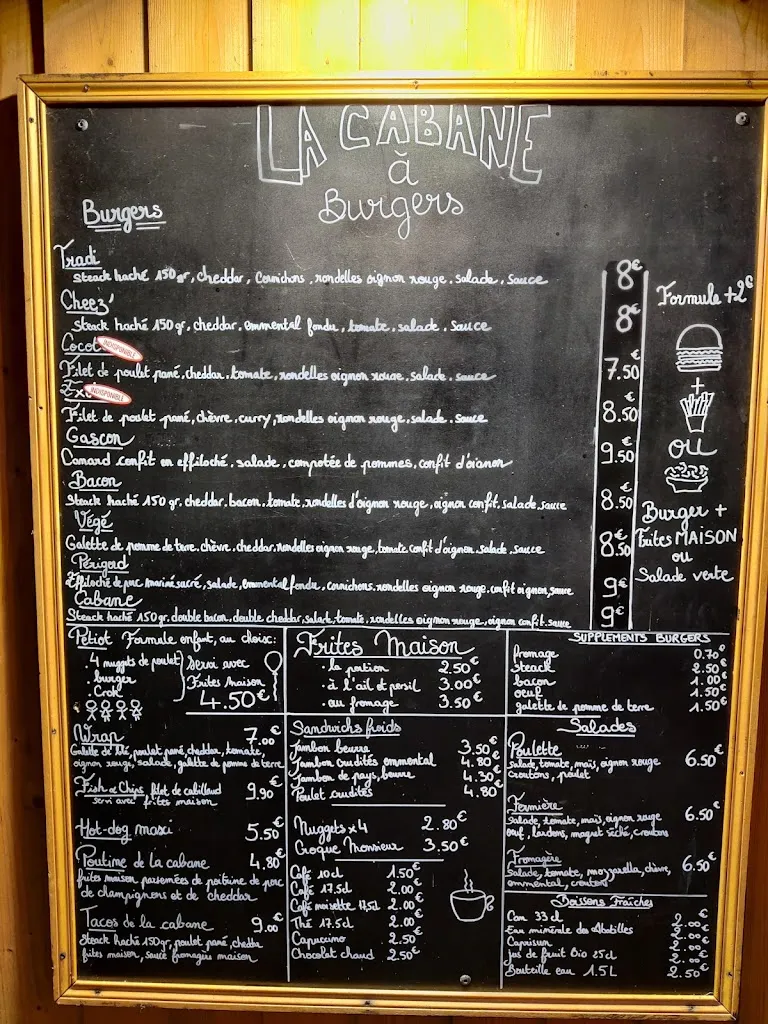 LA CABANE
à
Burgers
Burgers
Tradi
Steack haché 150gr, cheddar, Cornichons, rondelles oignon rouge, salade, sauce
8€
Cheez'
Steack haché 150gr, cheddar, emmental fondu, tomate, salade, sauce
8€
Cocot
INDISPONIBLE
Filet de poulet pané, cheddar, tomate, rondelles oignon rouge, salade, sauce
7.50€
INDISPONIBLE
Filet de poulet pané, chèvre, curry, rondelles oignon rouge, salade, sauce
8.50€
Gascon
Canard confit en effiloché, salade, compotée de pommes, confit d'oignon
9.50€
Bacon
Steack haché 150 gr, cheddar, bacon, tomate, rondelles d'oignon rouge, oignon confit, salade, sauce
8.50€
Végé
Galette de pomme de terre, chèvre, cheddar, rondelles oignon rouge, tomate confit d'oignon, salade, sauce
8.50€
Périgord
Effiloché de porc mariné sucré, salade, emmental fondu, cornichons, rondelles oignon rouge, confit oignon, sauce
9€
Cabane
Steack haché 150gr, double bacon, double cheddar, salade, tomate, rondelles oignon rouge, oignon confit, sauce
9€
Formule +2€
+
ou
Burger +
Frites MAISON
ou
Salade verte
Petiot Formule enfant, au choix:
. 4 nuggets de poulet
. burger
. Crok
Servi avec
Frites Maison
4.50€
Wrap 7.00€
Galette de blé, poulet pané, cheddar, tomate,
oignon rouge, salade, galette de pomme de terre
Fish & Chips, filet de cabillaud 9.90€
servi avec frites maison
Hot-dog maxi 5.50€
Poutine de la cabane 4.80€
frites maison, parsemées de poitrine de porc
de champignons et de cheddar
Tacos de la cabane 9.00€
Steack haché 150gr, poulet pané, cheddar
frites maison, sauce fromagère maison
Frites Maison
. la portion 2.50€
. à l'ail et persil 3.00€
. au fromage 3.50€
Sandwichs froids
Jambon beurre 3.50€
Jambon crudités emmental 4.80€
Jambon de pays, beurre 4.30€
Poulet crudités 4.80€
Nuggets x4 2.80€
Croque Monsieur 3.50€
Café 10cl 1.50€
Café 17.5cl 2.00€
Café noisette 17,5cl 2.00€
Thé 17.5cl 2.00€
Capuccino 2.50€
Chocolat chaud 2.50€
SUPPLEMENTS BURGERS
fromage 0.70€
steack 2.50€
bacon 1.00€
oeuf 1.50€
galette de pomme de terre 1.50€
Salades
Poulette 6.50€
Salade, tomate, maïs, oignon rouge
croutons, poulet
Fermière 6.50€
Salade, tomate, maïs, oignon rouge
oeuf, lardons, magret séché, croutons
Fromagère 6.50€
Salade, tomate, mozzarella, chèvre,
emmental, croutons
Boissons Fraîches
Can 33cl 2.00€
Eau minérale des Abatilles 2.00€
Caprisun 2.00€
jus de fruit Bio 25cl 2.00€
Bouteille eau 1.5L 2.50€